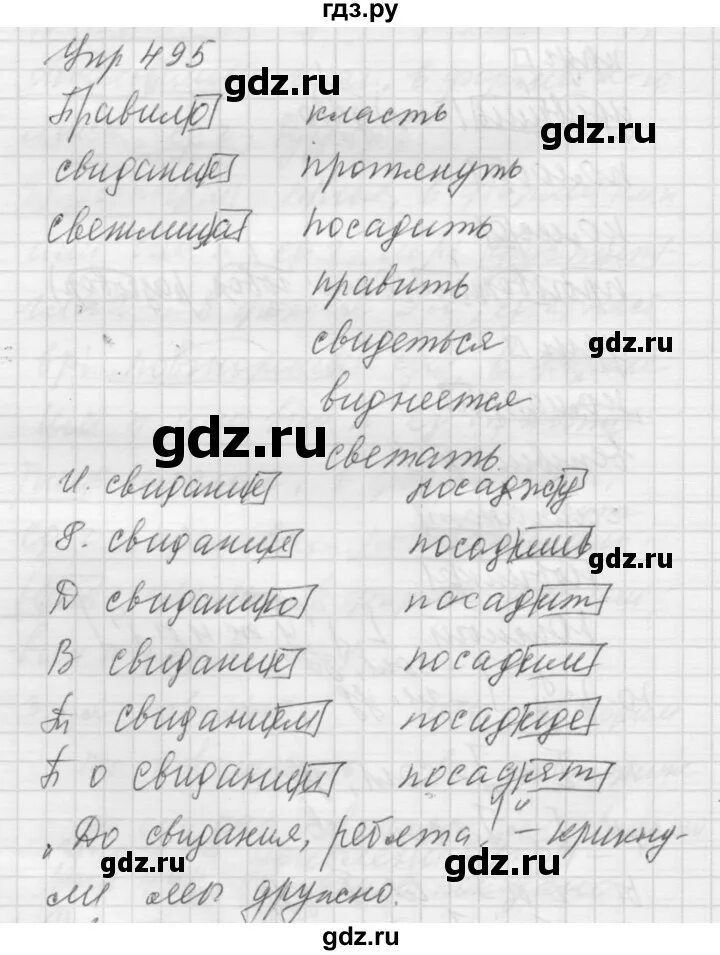 гдз.ру
Упр 495
gdz.ru
Правило класть
gdz.ru
свидание протянуть
светлица посадить
править
свидеться
gdz.ru
виднеется
gdz.ru
светать
И. свидание посаджу
Р. свидание посадишь
gdz.ru
Д свиданию посадит
В свидание посадим
Тв свиданием посадиде
П о свидании посадят
„До свидания, ребята!“ – крикну-
gdz.ru
gdz.ru
ли мы дружно.
gdz.ru